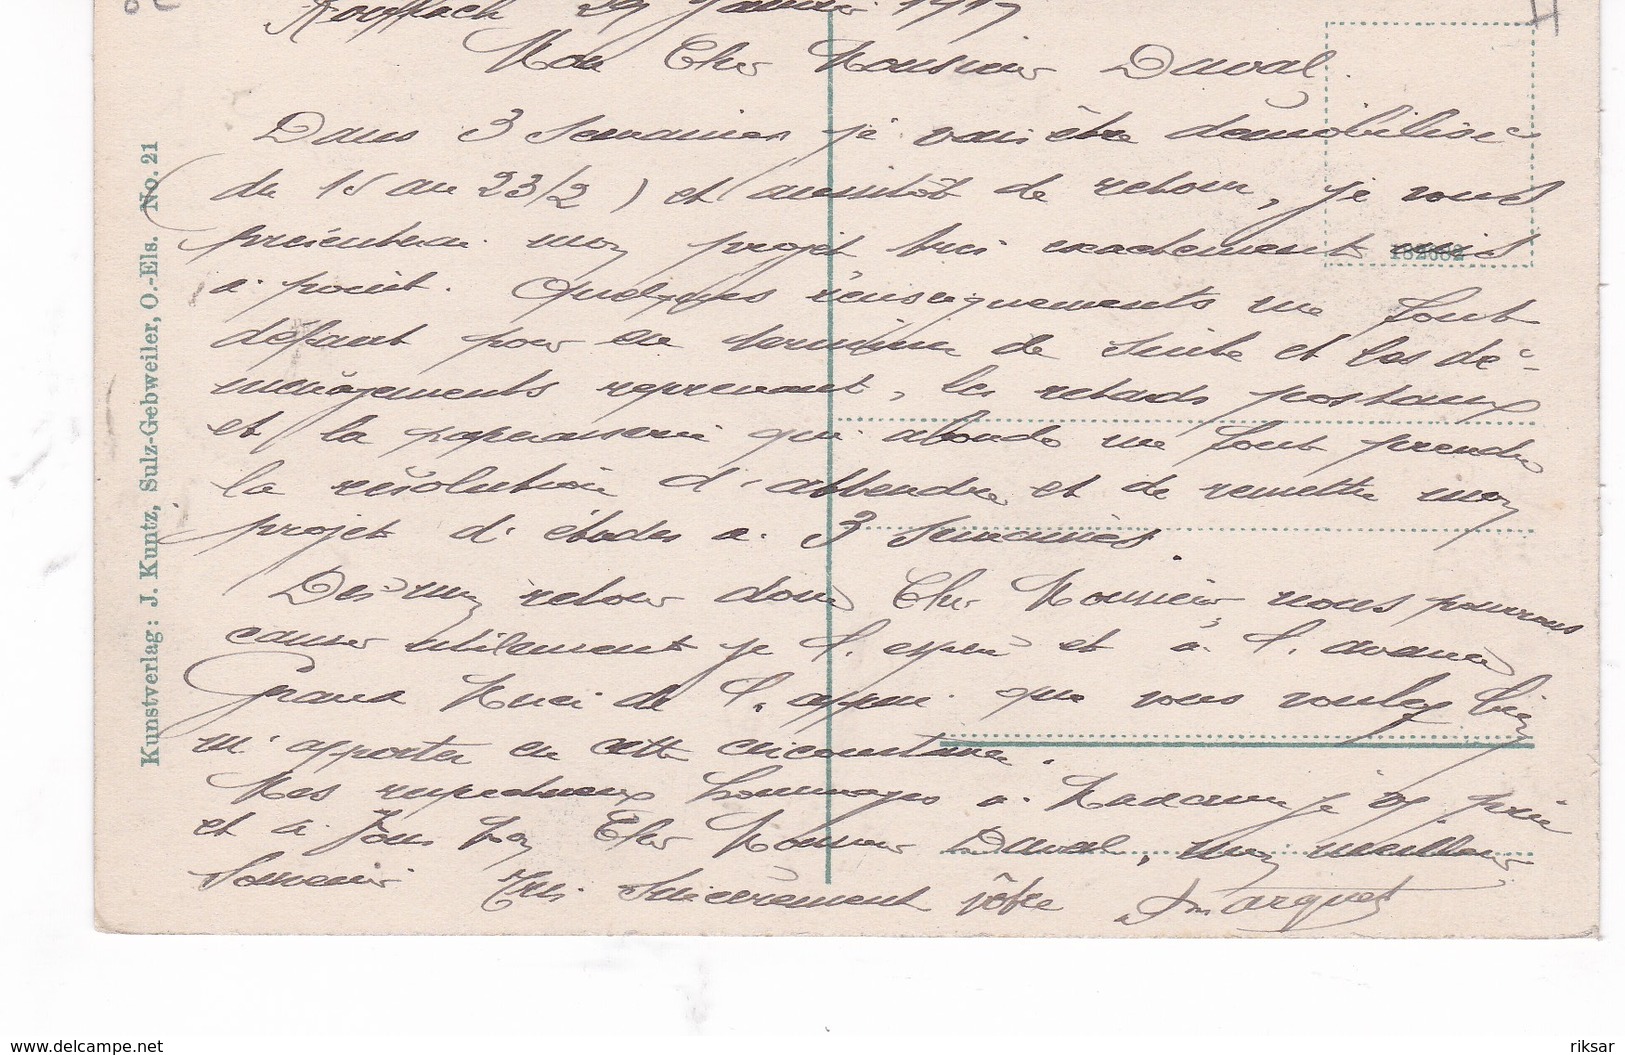 Rouffach 29 Janvier 1919
Mon Cher Monsieur Duval.
Dans 3 Semaines je vais être démobilisé
(du 15 au 23/2) et aussitôt de retour, je vous
présenterai mon projet très exactement mis
a point. Quelques renseignements me font
défaut pour en terminer de suite et les dé-
ménagements reprenant, les retards postaux
et la paperasserie qui abonde me font prendre
la résolution d'attendre et de remettre mon
projet d'études a 3 Semaines.
Dès mon retour donc Cher Monsieur nous pourrons
causer utilement je l'espère et à l'avance
Grand Merci de l'appui que vous voulez bien
m'apporter en cette circonstance.
Mes respectueux hommages a Madame je vs prie
et a Vous Mon Cher Monsieur Duval, mon meilleur
Souvenir. Très Sincèrement vôtre Marquet
Kunstverlag: J. Kuntz, Sulz-Gebweiler, O.-Els. No. 21
www.delcampe.net
riksar